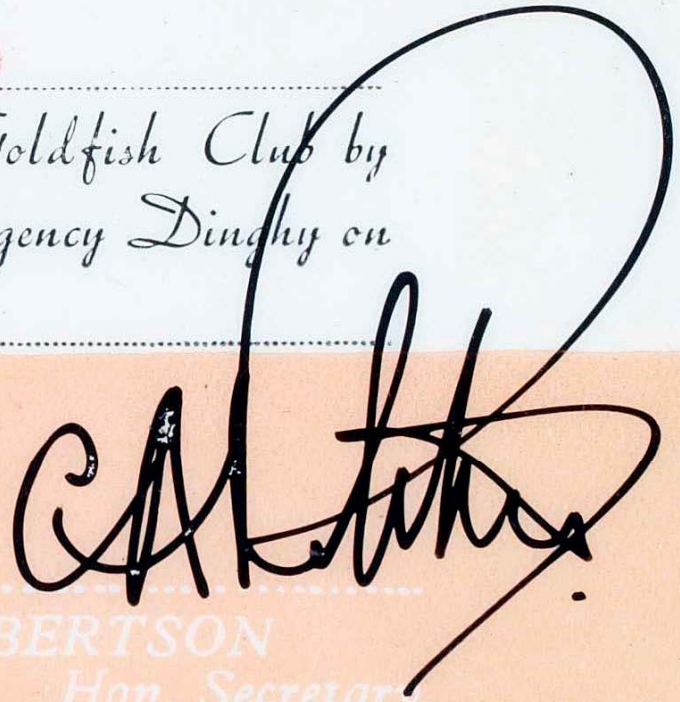 oldfish Club by
gency Dinghy on
BERTSON
Hon. Secretary